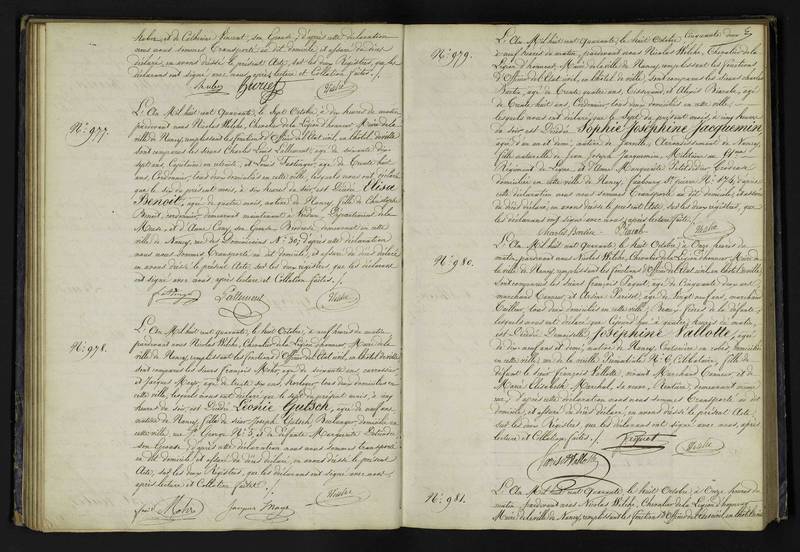 et de Catherine Vincent, son Epouse, d'après cette déclaration
nous nous sommes Transporté au dit domicile, et assuré du décès
déclaré, en avons dressé le présent Acte, sur les deux Registres, que les
déclarans ont signé avec nous, après lecture et Collation faites ./.
Welche
N.º 977.
L'An Mil huit cent Quarante, le Sept Octobre, à dix heures du matin,
pardevant nous Nicolas Welche, Chevalier de la Légion d'honneur, Maire de la
ville de Nancy, remplissant les fonctions d'Officier de l'Etat civil, en l'hôtel de ville
sont comparus les sieurs Charles Louis Lallement, agé de soixante dix
sept ans, Capitaine en retraite, et Louis agé de Trente huit
ans, Cordonnier, tous deux domiciliés en cette ville, lesquels nous ont déclaré
que le six du présent mois, à six heures du soir, est Décédée Elisa
Benoit, agée de quatre mois, native de Nancy, fille de Christophe
Benoit, cordonnier, demeurant maintenant à Verdun, Département de la
Meuse, et d'Anne Cony, son Epouse, Brodeuse, demeurant en cette
ville de Nancy, rue des Dominicains N.º 30; d'après cette déclaration
nous nous sommes Transporté au dit domicile, et assuré du décès déclaré
en avons dressé le présent Acte, sur les deux registres, que les déclarans
ont signé avec nous, après lecture et Collation faites ./.
Lallement Welche
N.º 978.
L'An Mil huit cent quarante, le huit Octobre, à neuf heures du matin
pardevant nous Nicolas Welche, Chevalier de la Légion d'honneur, Maire de la
ville de Nancy, remplissant les fonctions d'Officier de l'Etat civil, en l'hôtel de ville
sont comparus les sieurs François Mohr, agé de soixante ans, carossier,
et Jacques Maye, agé de trente six ans, horloger, tous deux domiciliés en
cette ville, lesquels nous ont déclaré que le sept du présent mois, à cinq
heures du soir, est Décédée Léonie Gutsch, agée de neuf ans,
native de Nancy, fille du sieur Joseph Gutsch, Boulanger, domicilié en
cette ville, rue S.t George N.º 3, et de défunte Marguerite
son Epouse, d'après cette déclaration nous nous sommes transporté
au dit domicile, et assuré du décès déclaré, en avons dressé le présent
Acte, sur les deux Registres, que les déclarans ont signé avec nous,
après lecture et Collation faites ./.
Mohr Jacques Maye Welche
N.º 979.
L'An Mil huit cent Quarante, le huit Octobre, Cinquante deux
à neuf heures du matin, pardevant nous Nicolas Welche, Chevalier de la
Légion d'honneur, Maire de la ville de Nancy, remplissant les fonctions
d'Officier de l'Etat civil, en l'hôtel de ville, sont comparus les sieurs Charles
agé de Trente quatre ans, Tisserand, et Alexis agé
de Trente huit ans, Cordonnier, tous deux domiciliés en cette ville,
lesquels nous ont déclaré que le Sept du présent mois, à cinq heures
du soir est Décédée Sophie Joséphine Jacquemin,
agée d'un an et demi, native de Jarville, Arrondissement de Nancy,
fille naturelle de Jean Joseph Jacquemin, Militaire au
Régiment de Ligne, et d'Anne Marguerite Petitdidier,
domiciliée en cette ville de Nancy, faubourg S.t pierre N.º 174, d'après
cette déclaration nous nous sommes Transporté au dit domicile, et assuré
du décès déclaré, en avons dressé le présent Acte, sur les deux registres, que
les déclarans ont signé avec nous, après lecture faite ./.
Charles Welche
N.º 980.
L'An Mil huit cent quarante, le huit Octobre, à Onze heures du
matin, pardevant nous Nicolas Welche, Chevalier de la Légion d'honneur, Maire de
la ville de Nancy, remplissant les fonctions d'Officier de l'Etat civil, en l'hôtel de ville
sont comparus les sieurs François Piquet, agé de Cinquante deux ans,
marchand Tanneur, et Arsène Parisot, agé de Vingt neuf ans, marchand
Tailleur, tous deux domiciliés en cette ville, Beaux frères de la défunte,
lesquels nous ont déclaré que Cejourd'hui à quatre heures du matin,
est Décédée Demoiselle Joséphine Vallotte, agée
de dix neuf ans et demi, native de Nancy, Couturière en robes, domiciliée
en cette ville, rue de la vieille Primatiale N.º 6, Célibataire, fille de
défunt le sieur François Vallotte, vivant Marchand Tanneur, et de
Marie Elisabeth Marchal, sa veuve, Rentière, demeurant même
rue; d'après cette déclaration nous nous sommes Transporté au dit
domicile, et assuré du décès déclaré, en avons dressé le présent Acte,
sur les deux registres, que les déclarans ont signé avec nous, après
lecture et Collation faites ./.
Piquet Welche
N.º 981.
L'An Mil huit cent Quarante, le huit Octobre, à Onze heures du
matin, pardevant nous Nicolas Welche, Chevalier de la Légion d'honneur,
Maire de la ville de Nancy, remplissant les fonctions d'Officier de l'Etat civil, en l'hôtel de ville